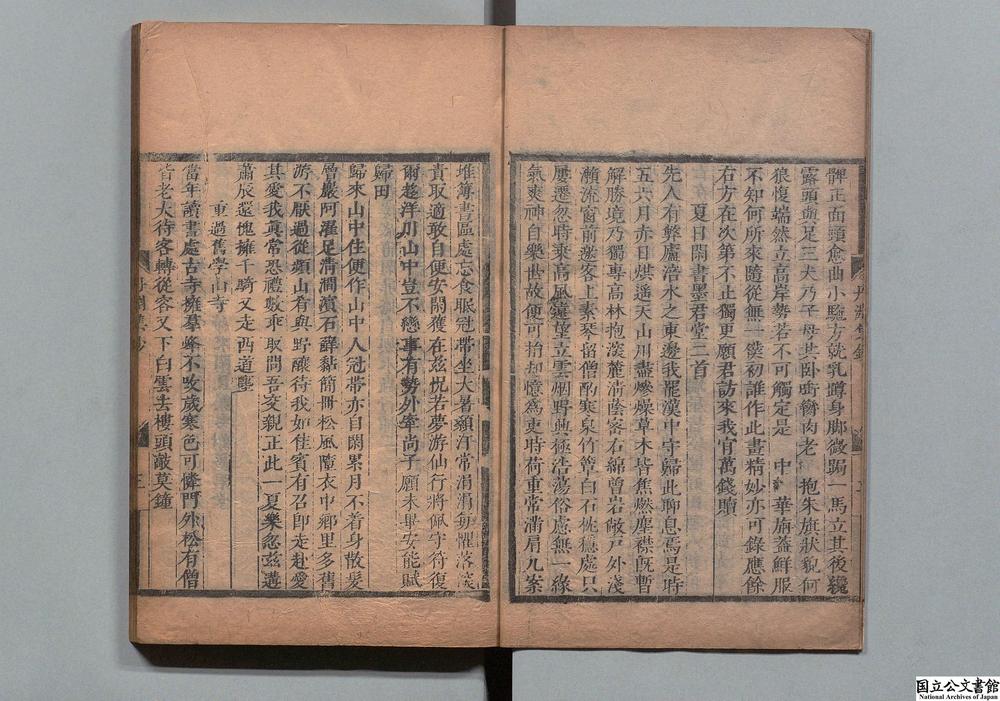 髀正面頭愈曲小駝方就乳蹲身脚微跼一馬立其後纔
露頭與足三犬乃子母共卧嚙臠肉老 抱朱旗狀貌何
狼愎端然立高岸勢若不可觸定是 中 華旃蓋鮮服
不知何所來隨從無一僕初誰作此畫精妙亦可錄應餘
右方在次第不止獨更願君訪來我官萬錢贖
夏日閑書墨君堂二首
先人有弊廬涪水之東邊我罷漢中守歸此聊息焉是時
五六月赤日烘遥天山川盡慘燥草木皆焦燃塵襟既暫
解勝境乃獨專高林抱深麓清蔭密石綿曾岩敞戸外淺
瀨流窗前邀客上素琴留僧酌寒泉竹簟白石枕穩處只
屢遷忽時乘高風遠望立雲烟野興極浩蕩俗慮無一緣
氣爽神自樂世故便可捐却憶爲吏時荷重常滿肩几案
堆簿書區處忘食眠冠帶坐大暑顙汗常涓涓每懼落深
責取適敢自便安閑獲在兹怳若夢游仙行將佩守符復
爾趍洋川山中豈不戀事有勢外牽尚子願未畢安能賦
歸田
歸來山中住便作山中人冠帶亦自閑累月不着身散髮
層巖阿濯足清澗濵石蘚黏簡冊松風隨衣巾鄉里多舊
游不厭過從頻山肴與野釀待我如佳賓有召即走赴愛
其愛我真常恐禮數乖取問吾交親正此一夏樂忽兹遘
蕭辰還愧擁千騎又走西道塵
重過舊學山寺
當年讀書處古寺擁羣峰不改歲寒色可憐門外松有僧
皆老大待客轉從容又下白雲去樓頭敲莫鐘
三
国立公文書館
National Archives of Japan